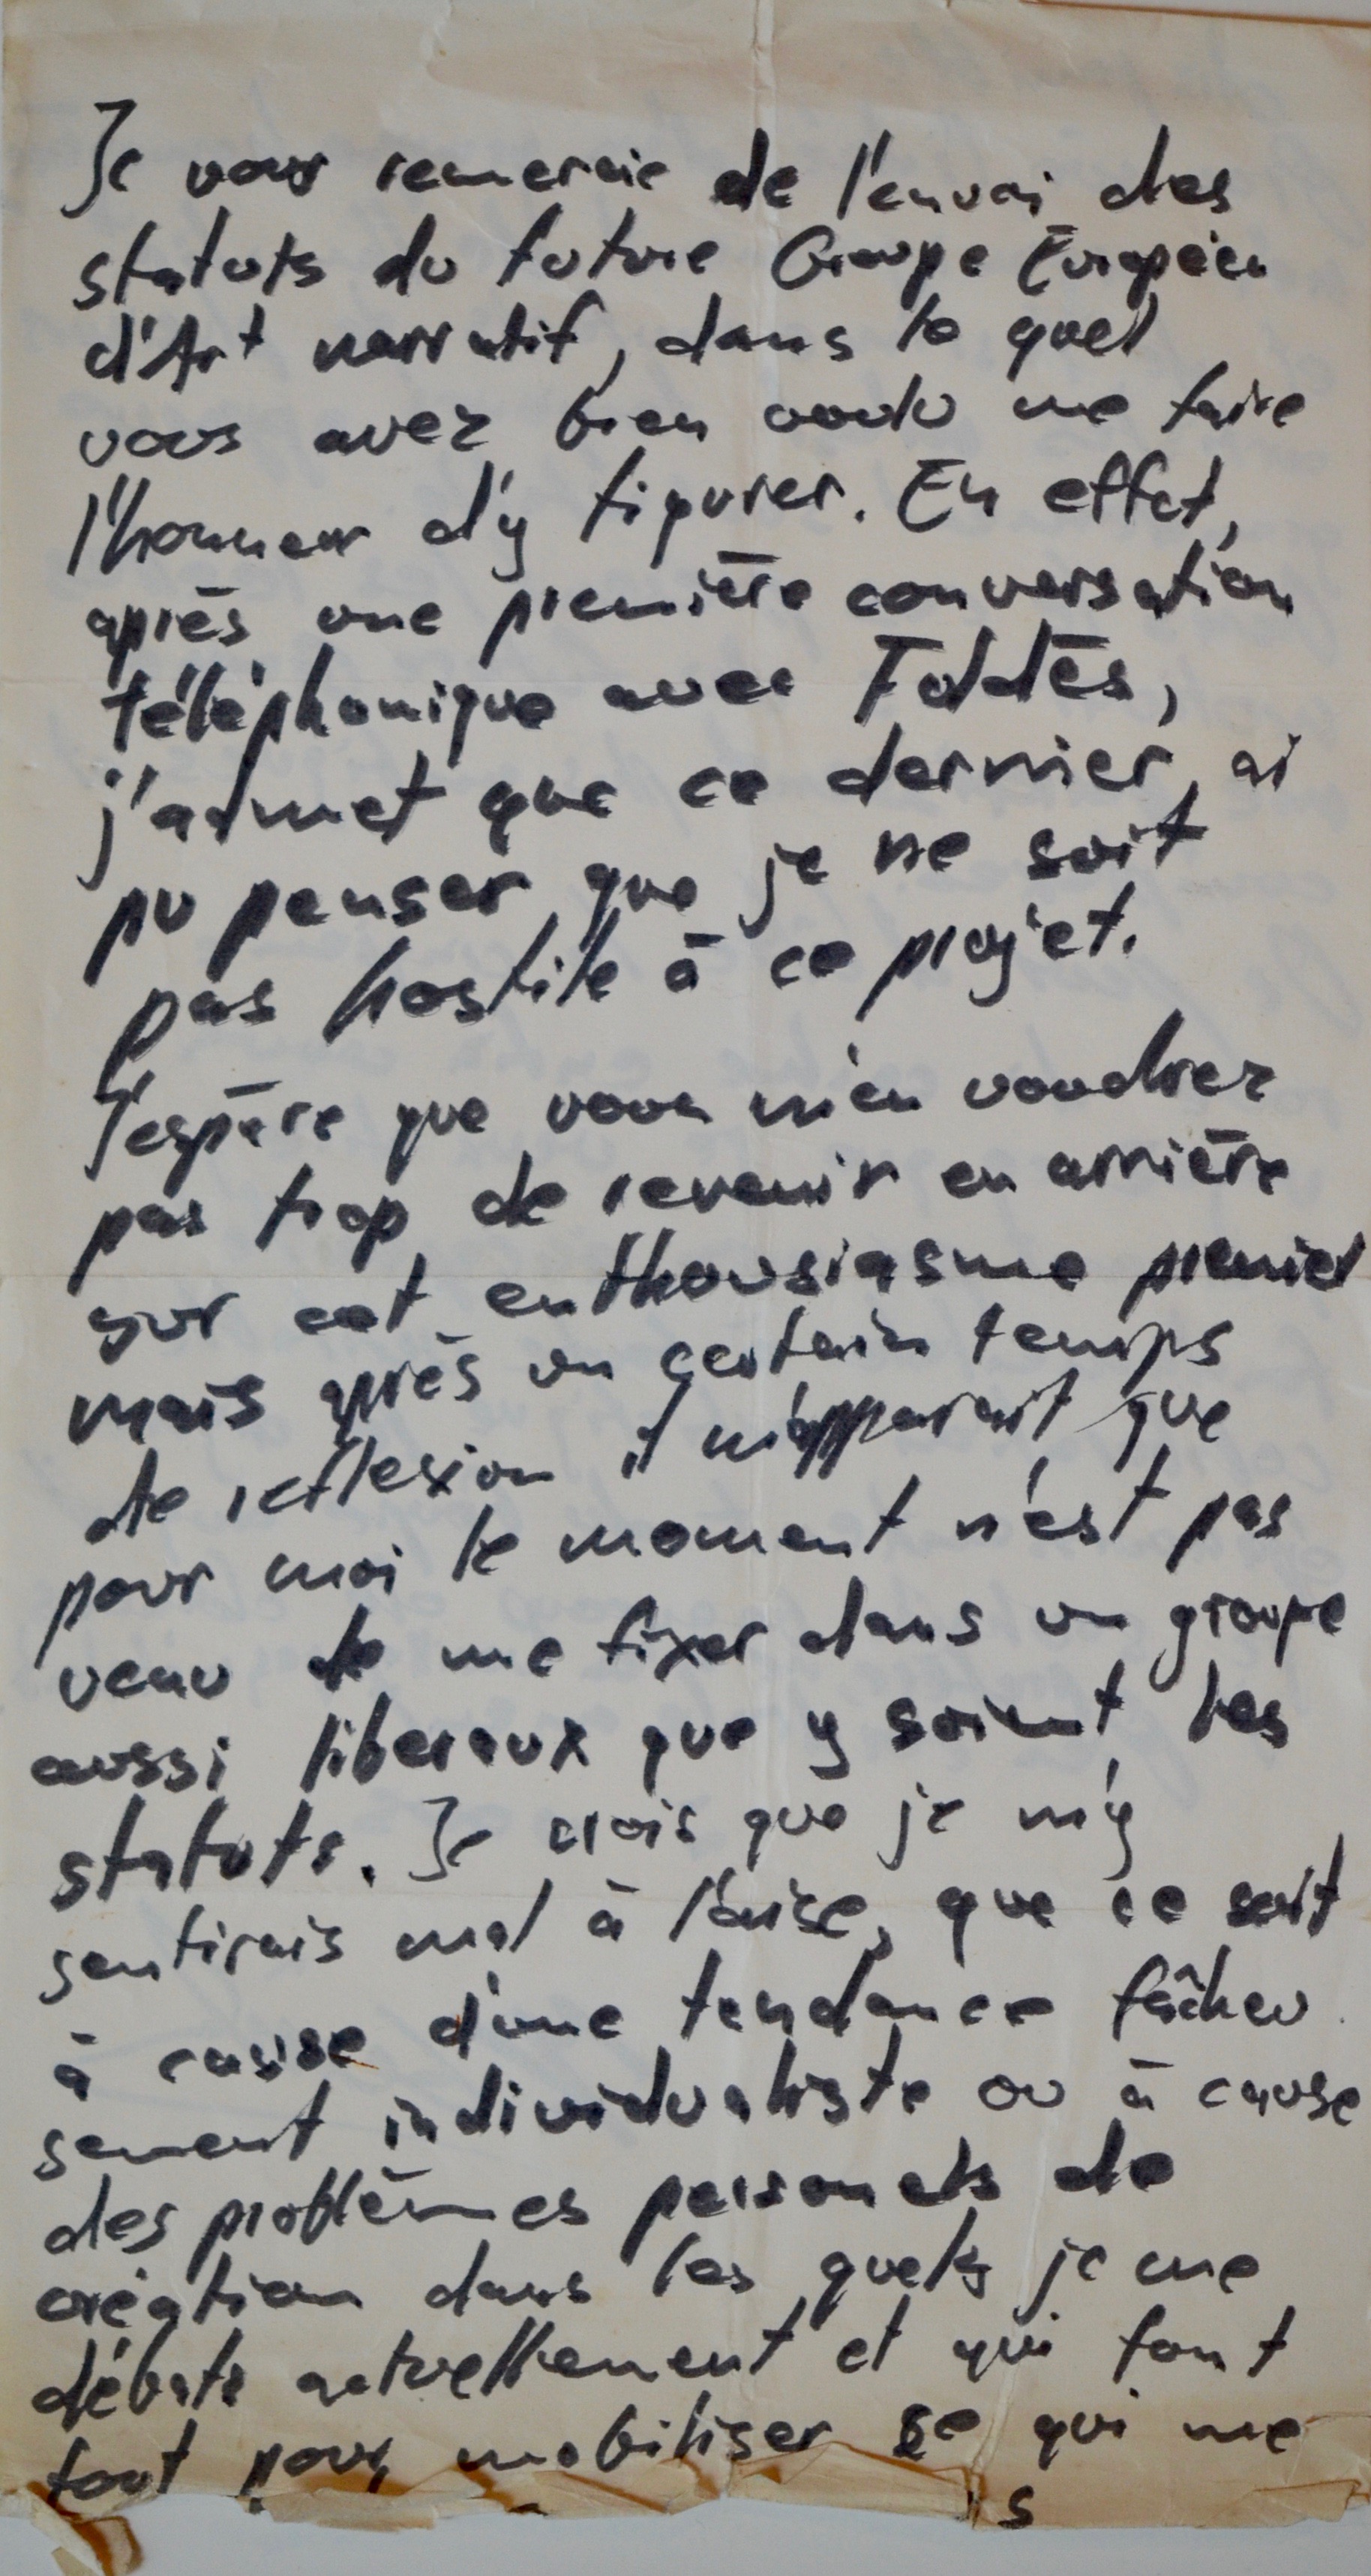 Je vous remercie de l'envoi des
statuts du future Groupe Européen
d'Art narratif, dans le quel
vous avez bien voulu me faire
l'honneur d'y figurer. En effet,
après une première conversation
téléphonique avec Foldès,
j'admet que ce dernier, ai
pu penser que je ne soit
pas hostile à ce projet.
J'espère que vous m'en voudrez
pas trop de revenir en arrière
sur cet enthousiasme premier
mais après un certain temps
de reflexion il m'apparait que
pour moi le moment n'est pas
venu de me fixer dans un groupe
aussi liberaux que y soient les
statuts. Je crois que je m'y
sentirais mal à l'aise, que ce soit
à cause d'une tendance fâcheu
sement individualiste ou à cause
des problèmes personels de
création dans les quels je me
débats actuellement et qui font
tout pour mobiliser se qui me
s